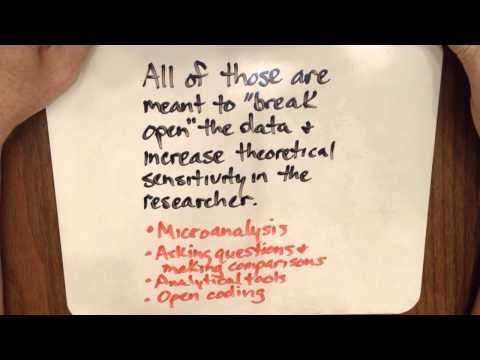 All of those are
meant to "break
open" the data &
increase theoretical
sensitivity in the
researcher.
• Microanalysis
• Asking questions &
making comparisons
• Analytical tools
• Open coding